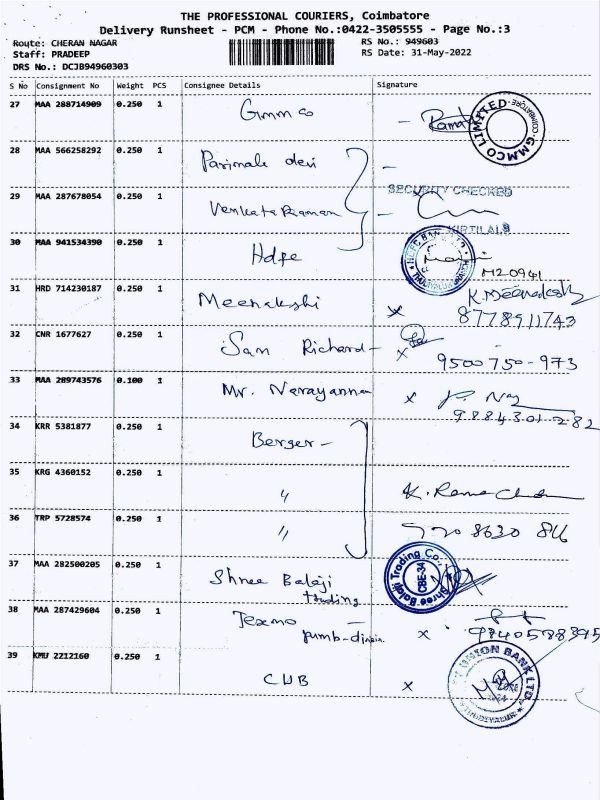 THE PROFESSIONAL COURIERS, Coimbatore
Delivery Runsheet - PCM - Phone No.:0422-3505555 - Page No.:3
Route: CHERAN NAGAR RS No.: 949603
Staff: PRADEEP RS Date: 31-May-2022
DRS No.: DCJB94960303
S No Consignment No Weight PCS Consignee Details Signature
27 MAA 288714909 0.250 1 Gmmco
GMMCO LIMITED COIMBATORE
28 MAA 566258292 0.250 1 Parimala devi
SECURITY CHECKED
29 MAA 287678054 0.250 1 Venkata Raman
KIRTILALS
30 MAA 941534390 0.250 1 Hdfc
M20941
31 HRD 714230187 0.250 1 Meenakshi x K.Meenakshi
8778911743
32 CNR 1677627 0.250 1 San Richard - x
9500750-973
33 MAA 289743576 0.100 1 Mr. Narayannan x
9884301282
34 KRR 5381877 0.250 1 Berger -
35 KRG 4360152 0.250 1 " K. Rama
36 TRP 5728574 0.250 1 "
37 MAA 282500205 0.250 1 Shree Balaji
trading
Shree Balaji Trading Co., CBE-34
38 MAA 287429604 0.250 1 Texmo -
x
39 KMU 2212160 0.250 1 CUB x
UNION BANK LTD.